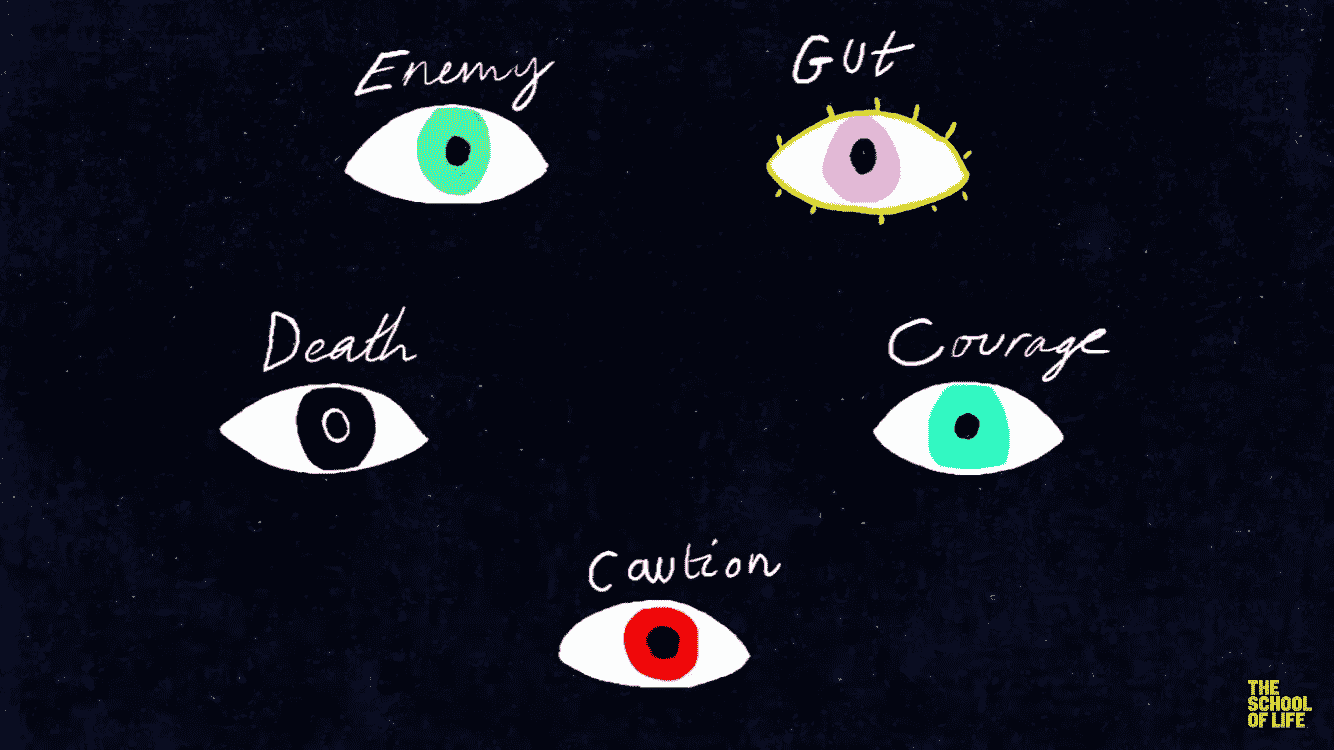 Enemy
Gut
Death
Courage
Caution
THE
SCHOOL
OF LIFE